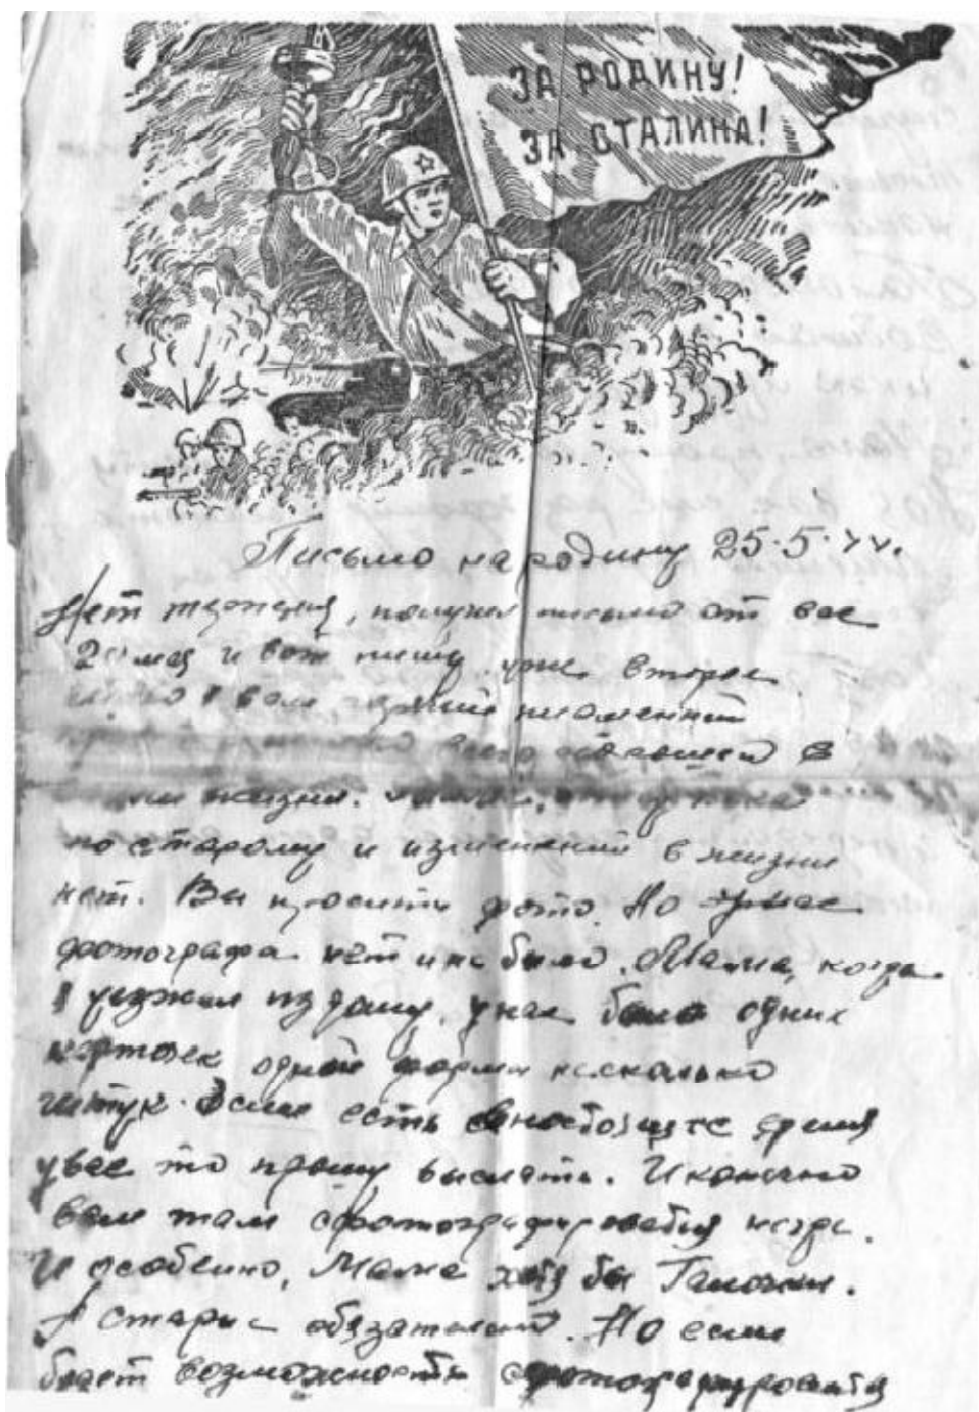 ЗА РОДИНУ!
ЗА СТАЛИНА!
Письмо на родину 25.5.44.
получил письмо от вас
20 мая и вот пишу уже второе
вам пламенный
в
жизни.
по старому и изменений в жизни
нет. Вы просити фото. Но у нас
фотографа нет и не было. Мама, когда
я уезжал из дому, у нас было одних
карточек одной формы несколько
штук. Если есть в настоящее время
у вас то прошу выслать. И конечно
вам там сфотографироватся негде.
И особенно, Мама хотя бы Галочки.
А старые обязательно. Но если
будет возможность сфотографироватся